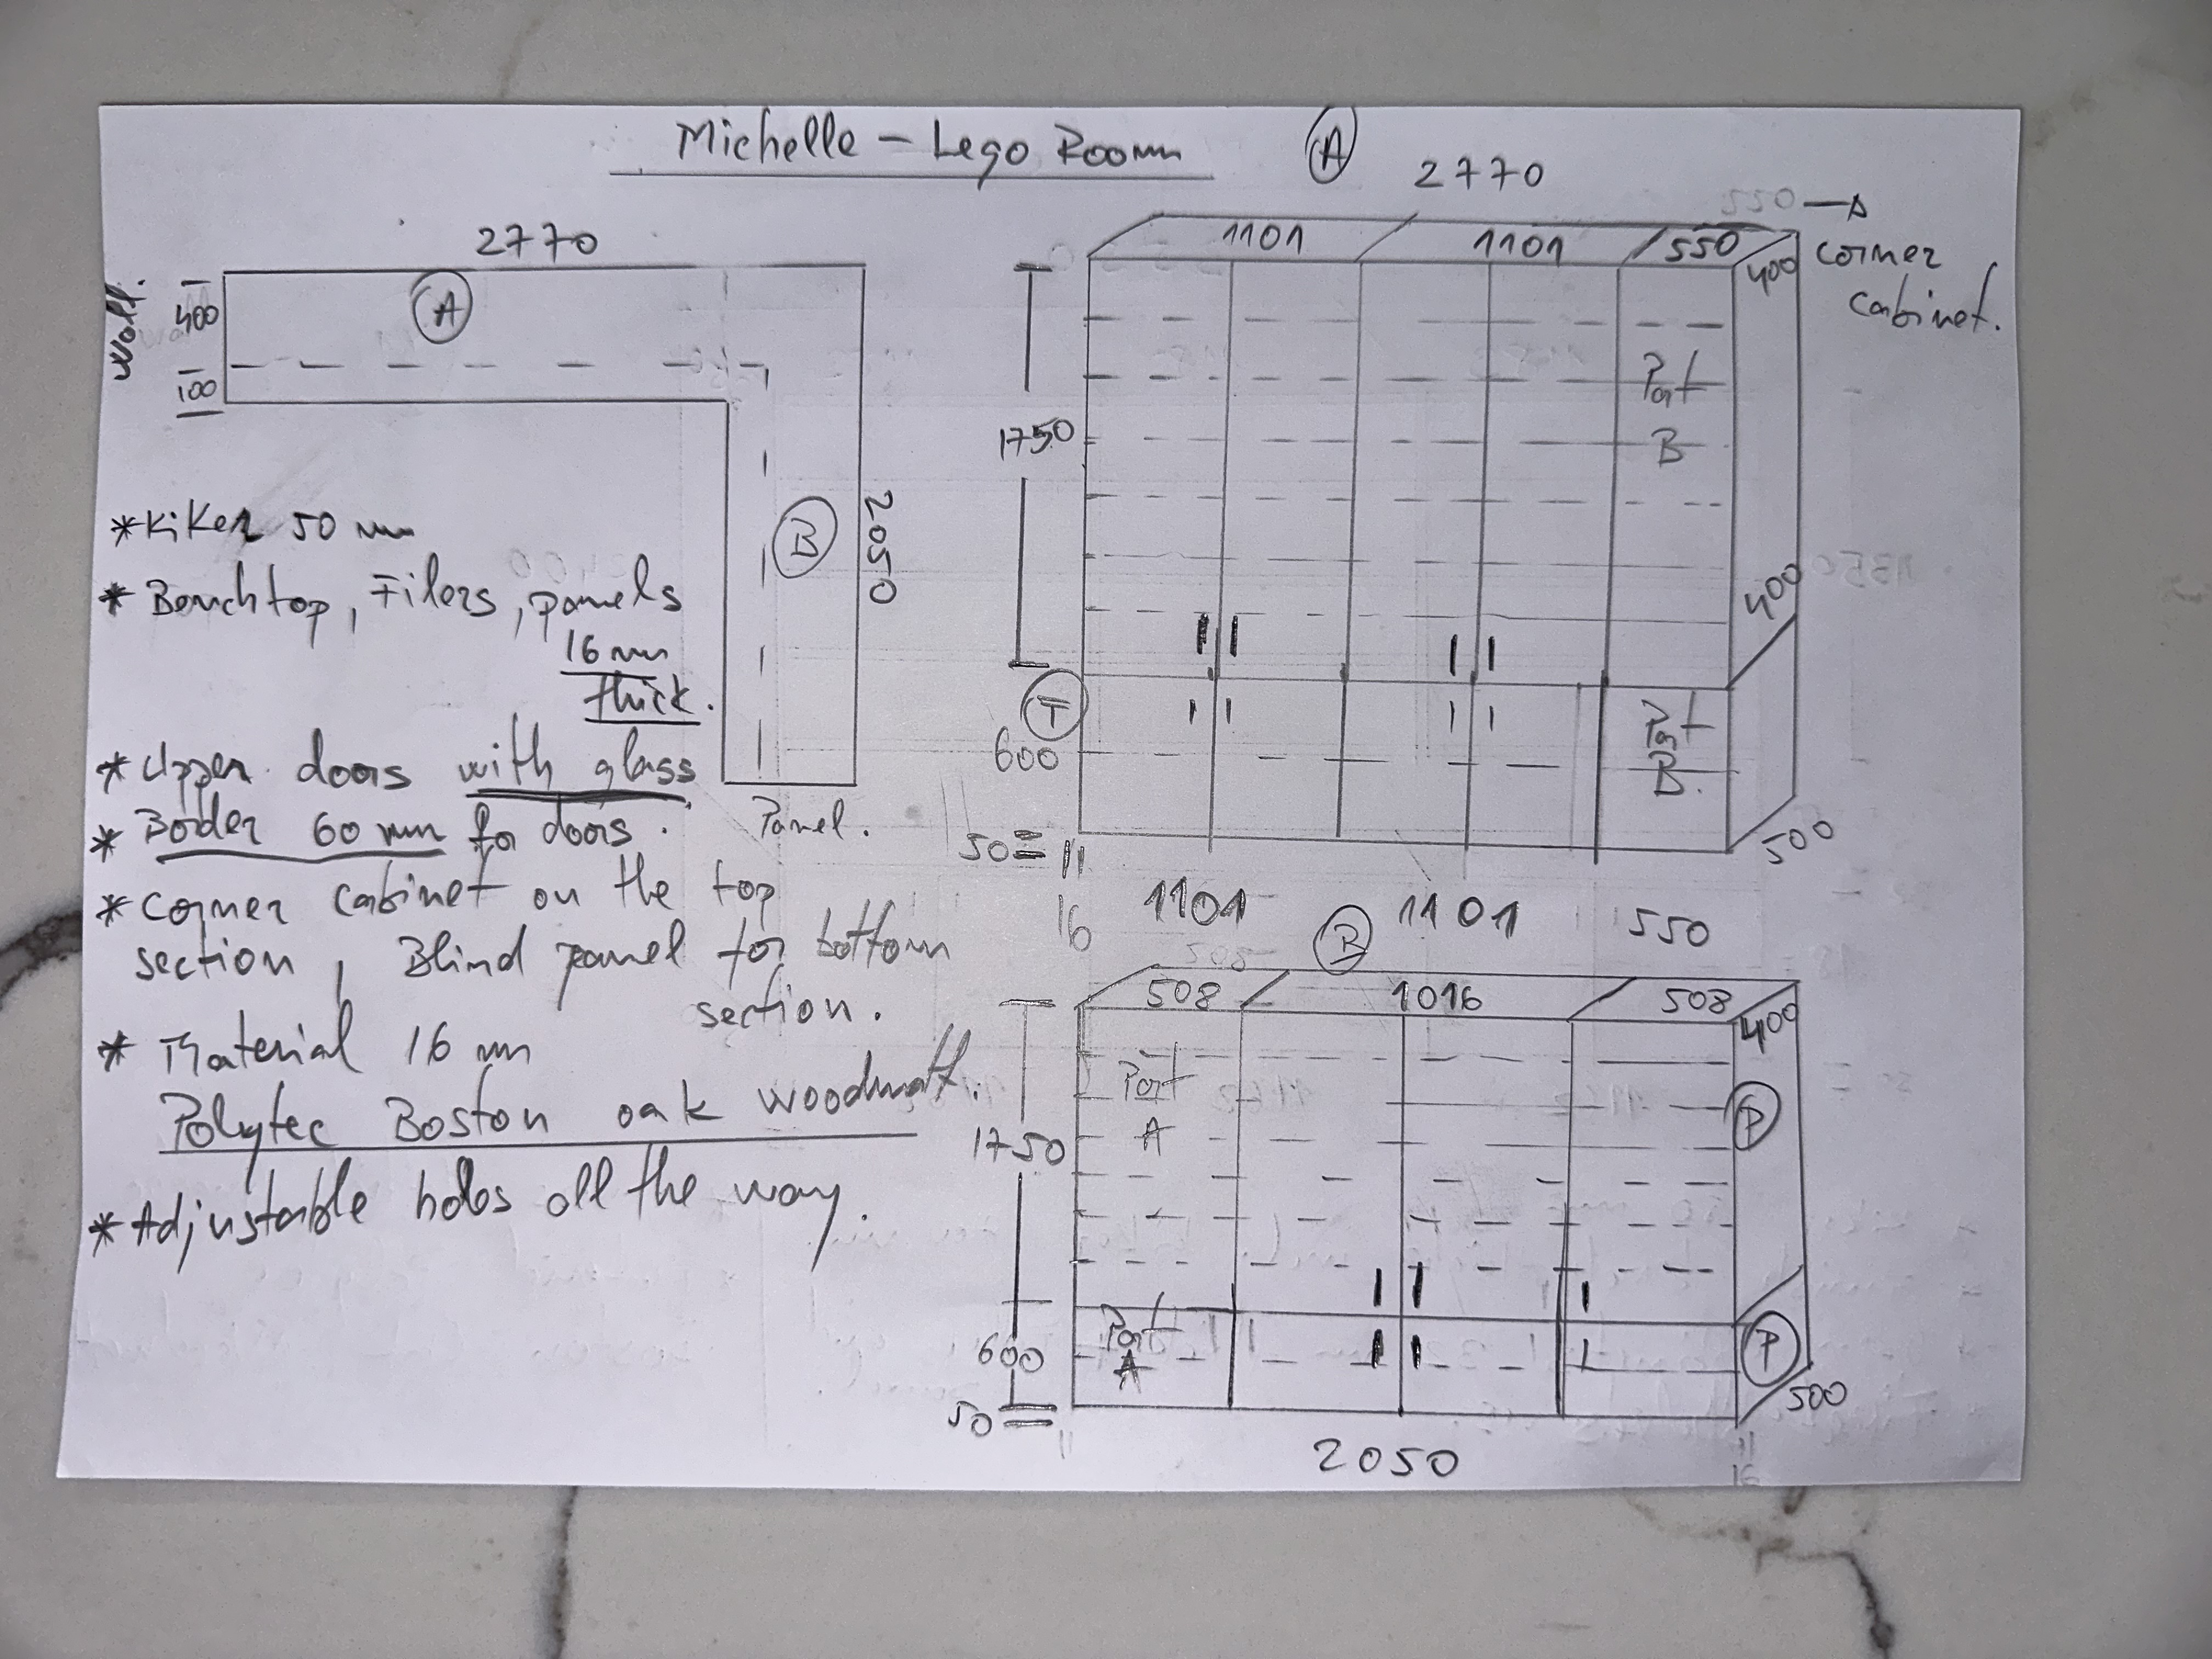 Michelle - Lego Room
A
2770
2770
Wall.
400
100
A
B
2050
Panel.
*Kiker 50 mm
* Benchtop, Filers, panels
16 mm
thick.
* Upper doors with glass
* Boder 60 mm for doors.
* corner cabinet on the top
section, Blind panel for bottom
section.
* Material 16 mm
Polytec Boston oak woodmatt.
* Adjustable holes all the way.
1101
1101
550
400
corner
cabinet.
1750
Part
B
400
T
600
Part
B.
50
500
16
1101
1101
550
B
508
1016
508
400
Part
A
P
1750
Part
A
P
600
50
500
2050
16